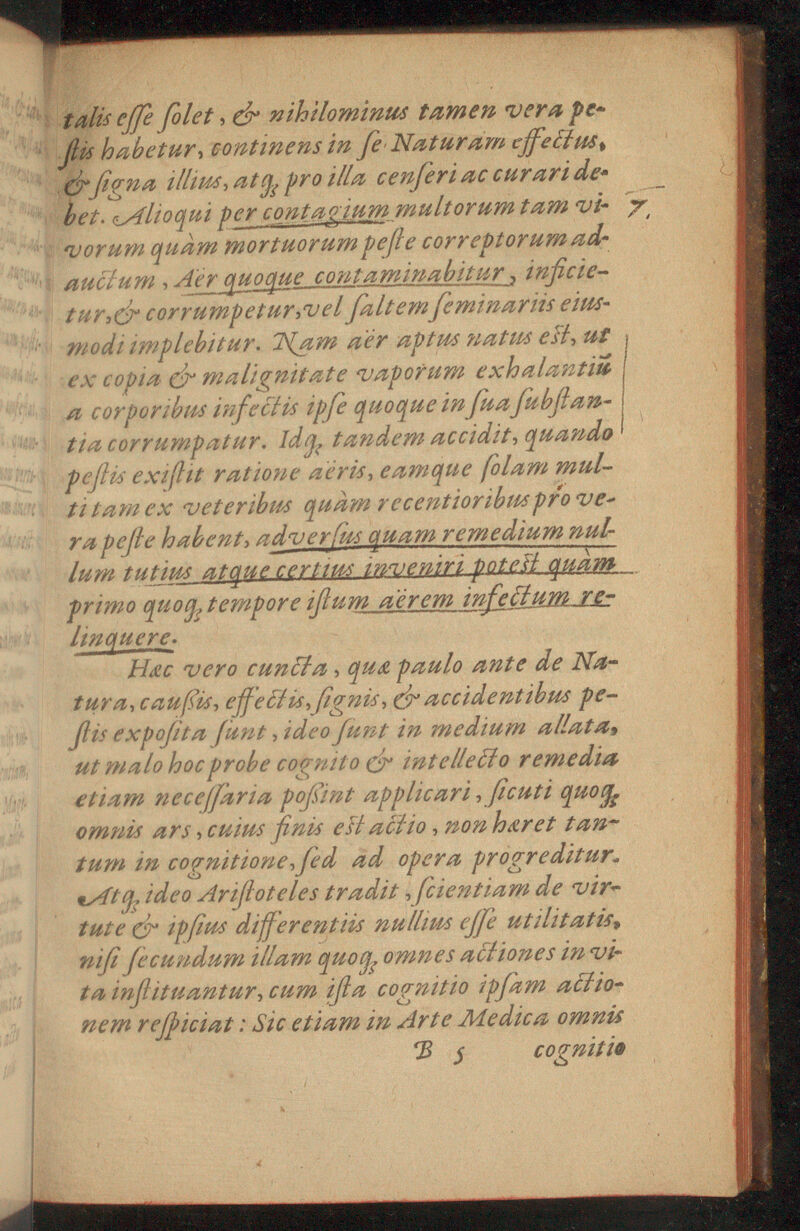 talis eſſe ſolet, & nihilominus tamen vera pe-
ſtis habetur, continens in ſe Naturam effectus,
& ſigna illius, atq, pro illa cenſeri ac curari de-
bet. Alioqui per contagium multorum tam vi-
vorum quàm mortuorum peſte correptorum ad-
auctum, Aër quoque contaminabitur, inficie-
tur, & corrumpetur, vel ſaltem ſeminariis eius-
modi implebitur. Nam aër aptus natus eſt, ut
ex copia & malignitate vaporum exhalantiũ
a corporibus infectis ipſe quoque in ſua ſubſtan-
tia corrumpatur. Idq, tandem accidit, quando
peſtis exiſtit ratione aëris, eamque ſolam mul-
ti tam ex veteribus quàm recentioribus pro ve-
ra peſte habent, adverſus quam remedium nul-
lum tutius atque certius inveniri poteſt quàm
primo quoq, tempore iſtum aërem infectum re-
linquere.
Hæc vero cuncta, quæ paulo ante de Na-
tura, cauſsis, effectis, ſignis, & accidentibus pe-
ſtis expoſita ſunt, ideo ſunt in medium allata,
ut malo hoc probe cognito & intellecto remedia
etiam neceſſaria poſsint applicari, ſicuti quoq,
omnis ars, cuius finis eſt actio, non hæret tan-
tum in cognitione, ſed ad opera progreditur.
Atq, ideo Ariſtoteles tradit, ſcientiam de vir-
tute & ipſius differentiis nullius eſſe utilitatis,
niſi ſecundum illam quoq, omnes actiones in vi-
ta inſtituantur, cum iſta cognitio ipſam actio-
nem reſpiciat: Sic etiam in Arte Medica omnis
B 5 cognitio